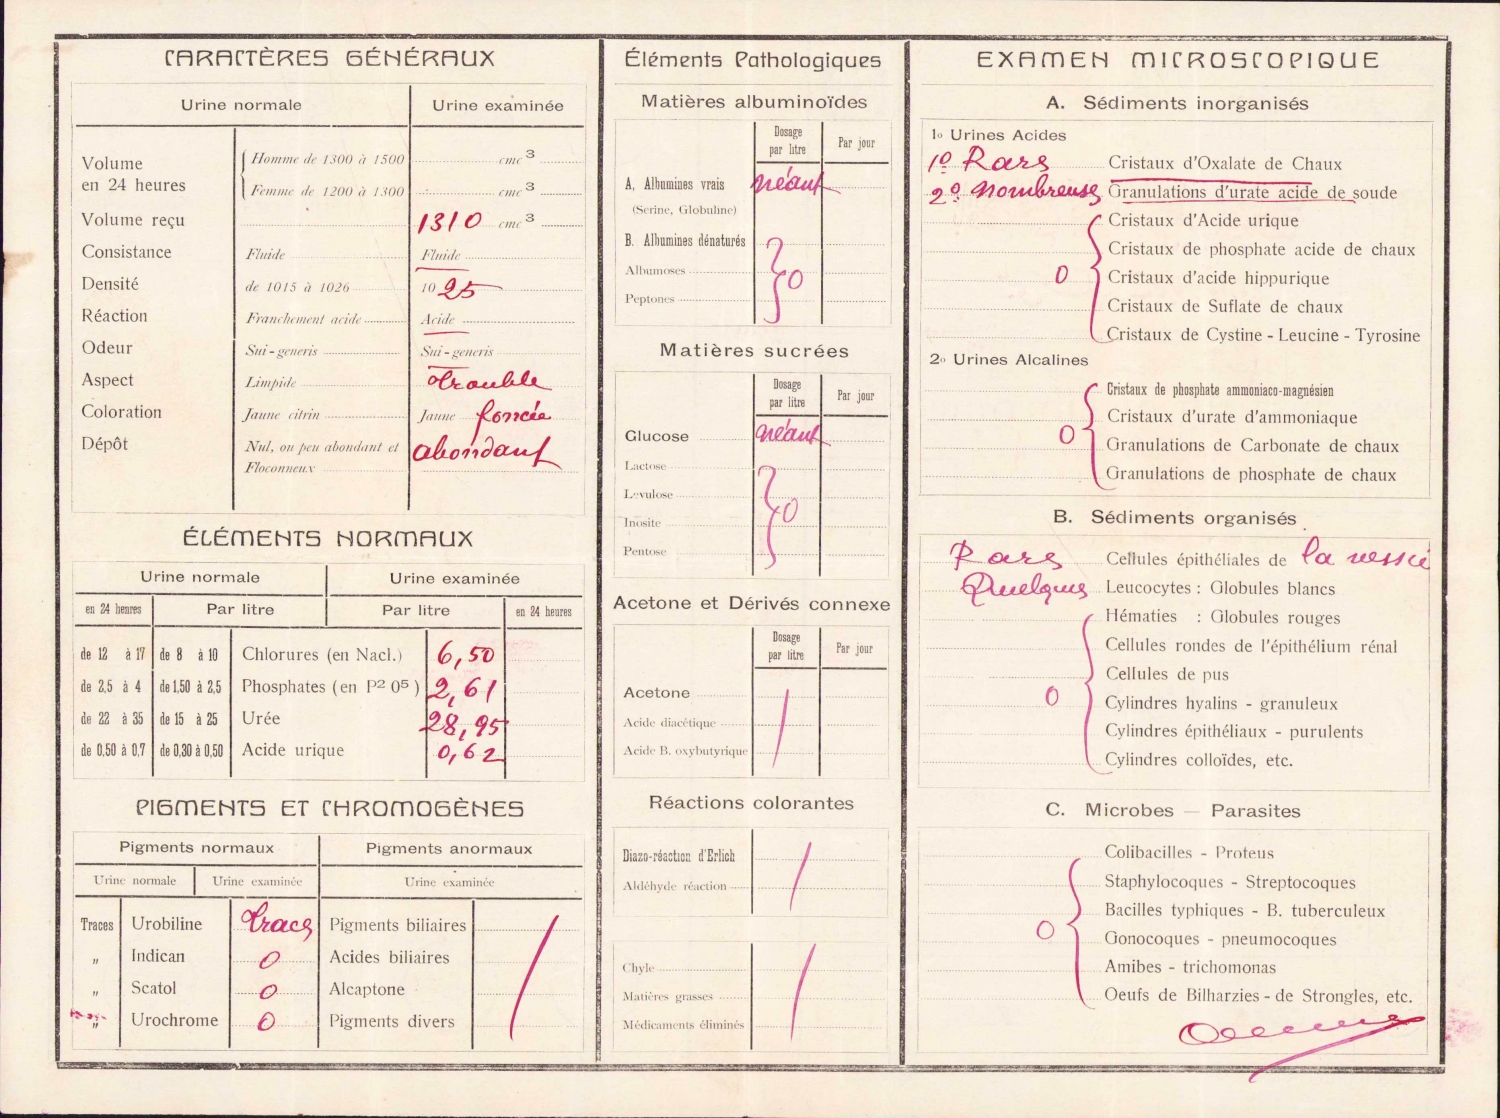 CARACTÈRES GÉNÉRAUX
Urine normale Urine examinée
Volume en 24 heures Homme de 1300 à 1500 cmc 3
Femme de 1200 à 1300 cmc 3
Volume reçu 1310 cmc 3
Consistance Fluide Fluide
Densité de 1015 à 1026 10 25
Réaction Franchement acide Acide
Odeur Sui-generis Sui-generis
Aspect Limpide trouble
Coloration Jaune citrin Jaune foncée
Dépôt Nul, ou peu abondant et abondant
Floconneux
ÉLÉMENTS NORMAUX
Urine normale Urine examinée
en 24 heures Par litre Par litre en 24 heures
de 12 à 17 de 8 à 10 Chlorures (en Nacl.) 6,50
de 2,5 à 4 de 1,50 à 2,5 Phosphates (en P2 O5) 2,61
de 22 à 35 de 15 à 25 Urée 28,95
de 0,50 à 0,7 de 0,30 à 0,50 Acide urique 0,62
PIGMENTS ET CHROMOGÈNES
Pigments normaux Pigments anormaux
Urine normale Urine examinée Urine examinée
Traces Urobiline traces Pigments biliaires
" Indican 0 Acides biliaires
" Scatol 0 Alcaptone
" Urochrome 0 Pigments divers
Éléments Pathologiques
Matières albuminoïdes
Dosage par litre Par jour
A. Albumines vrais néant
(Serine, Globuline)
B. Albumines dénaturés
Albumoses 0
Peptones
Matières sucrées
Dosage par litre Par jour
Glucose néant
Lactose
Levulose
Inosite 0
Pentose
Acetone et Dérivés connexe
Dosage par litre Par jour
Acetone
Acide diacétique
Acide B. oxybutyrique
Réactions colorantes
Diazo-réaction d'Erlich
Aldéhyde réaction
Chyle
Matières grasses
Médicaments éliminés
EXAMEN MICROSCOPIQUE
A. Sédiments inorganisés
1o Urines Acides
1o Rares Cristaux d'Oxalate de Chaux
2o nombreuses Granulations d'urate acide de soude
Cristaux d'Acide urique
Cristaux de phosphate acide de chaux
0 Cristaux d'acide hippurique
Cristaux de Suflate de chaux
Cristaux de Cystine - Leucine - Tyrosine
2o Urines Alcalines
Cristaux de phosphate ammoniaco-magnésien
Cristaux d'urate d'ammoniaque
0 Granulations de Carbonate de chaux
Granulations de phosphate de chaux
B. Sédiments organisés
Rares Cellules épithéliales de la vessie
Quelques Leucocytes : Globules blancs
Hématies : Globules rouges
Cellules rondes de l'épithélium rénal
Cellules de pus
0 Cylindres hyalins - granuleux
Cylindres épithéliaux - purulents
Cylindres colloïdes, etc.
C. Microbes — Parasites
Colibacilles - Proteus
Staphylocoques - Streptocoques
Bacilles typhiques - B. tuberculeux
0 Gonocoques - pneumocoques
Amibes - trichomonas
Oeufs de Bilharzies - de Strongles, etc.